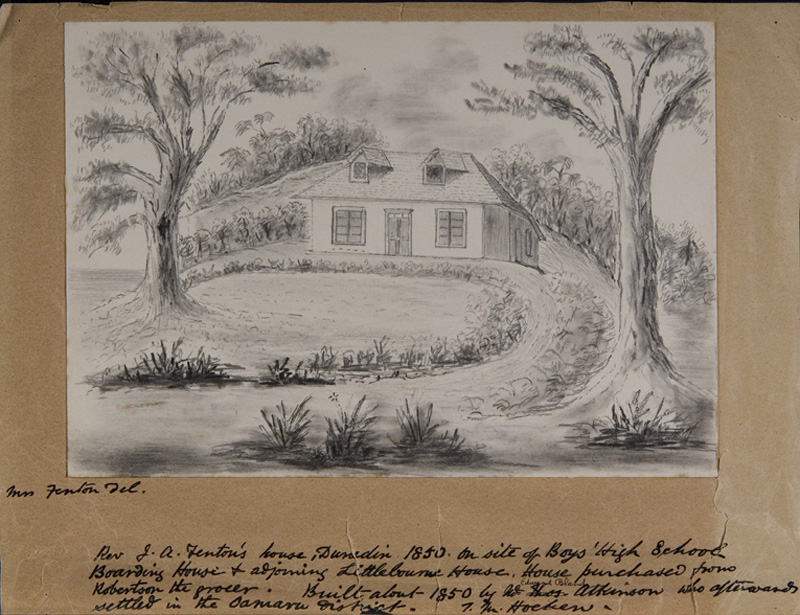 Mrs Fenton Del.
Rev J. A. Fenton's house, Dunedin 1850. on site of Boys' High School
Boarding House & adjoining Littlebourne House. House purchased from
Edward Bland
Robertson the grocer. Built about 1850 by Atkinson who afterwards
settled in the Oamaru District. T. M. Hocken.